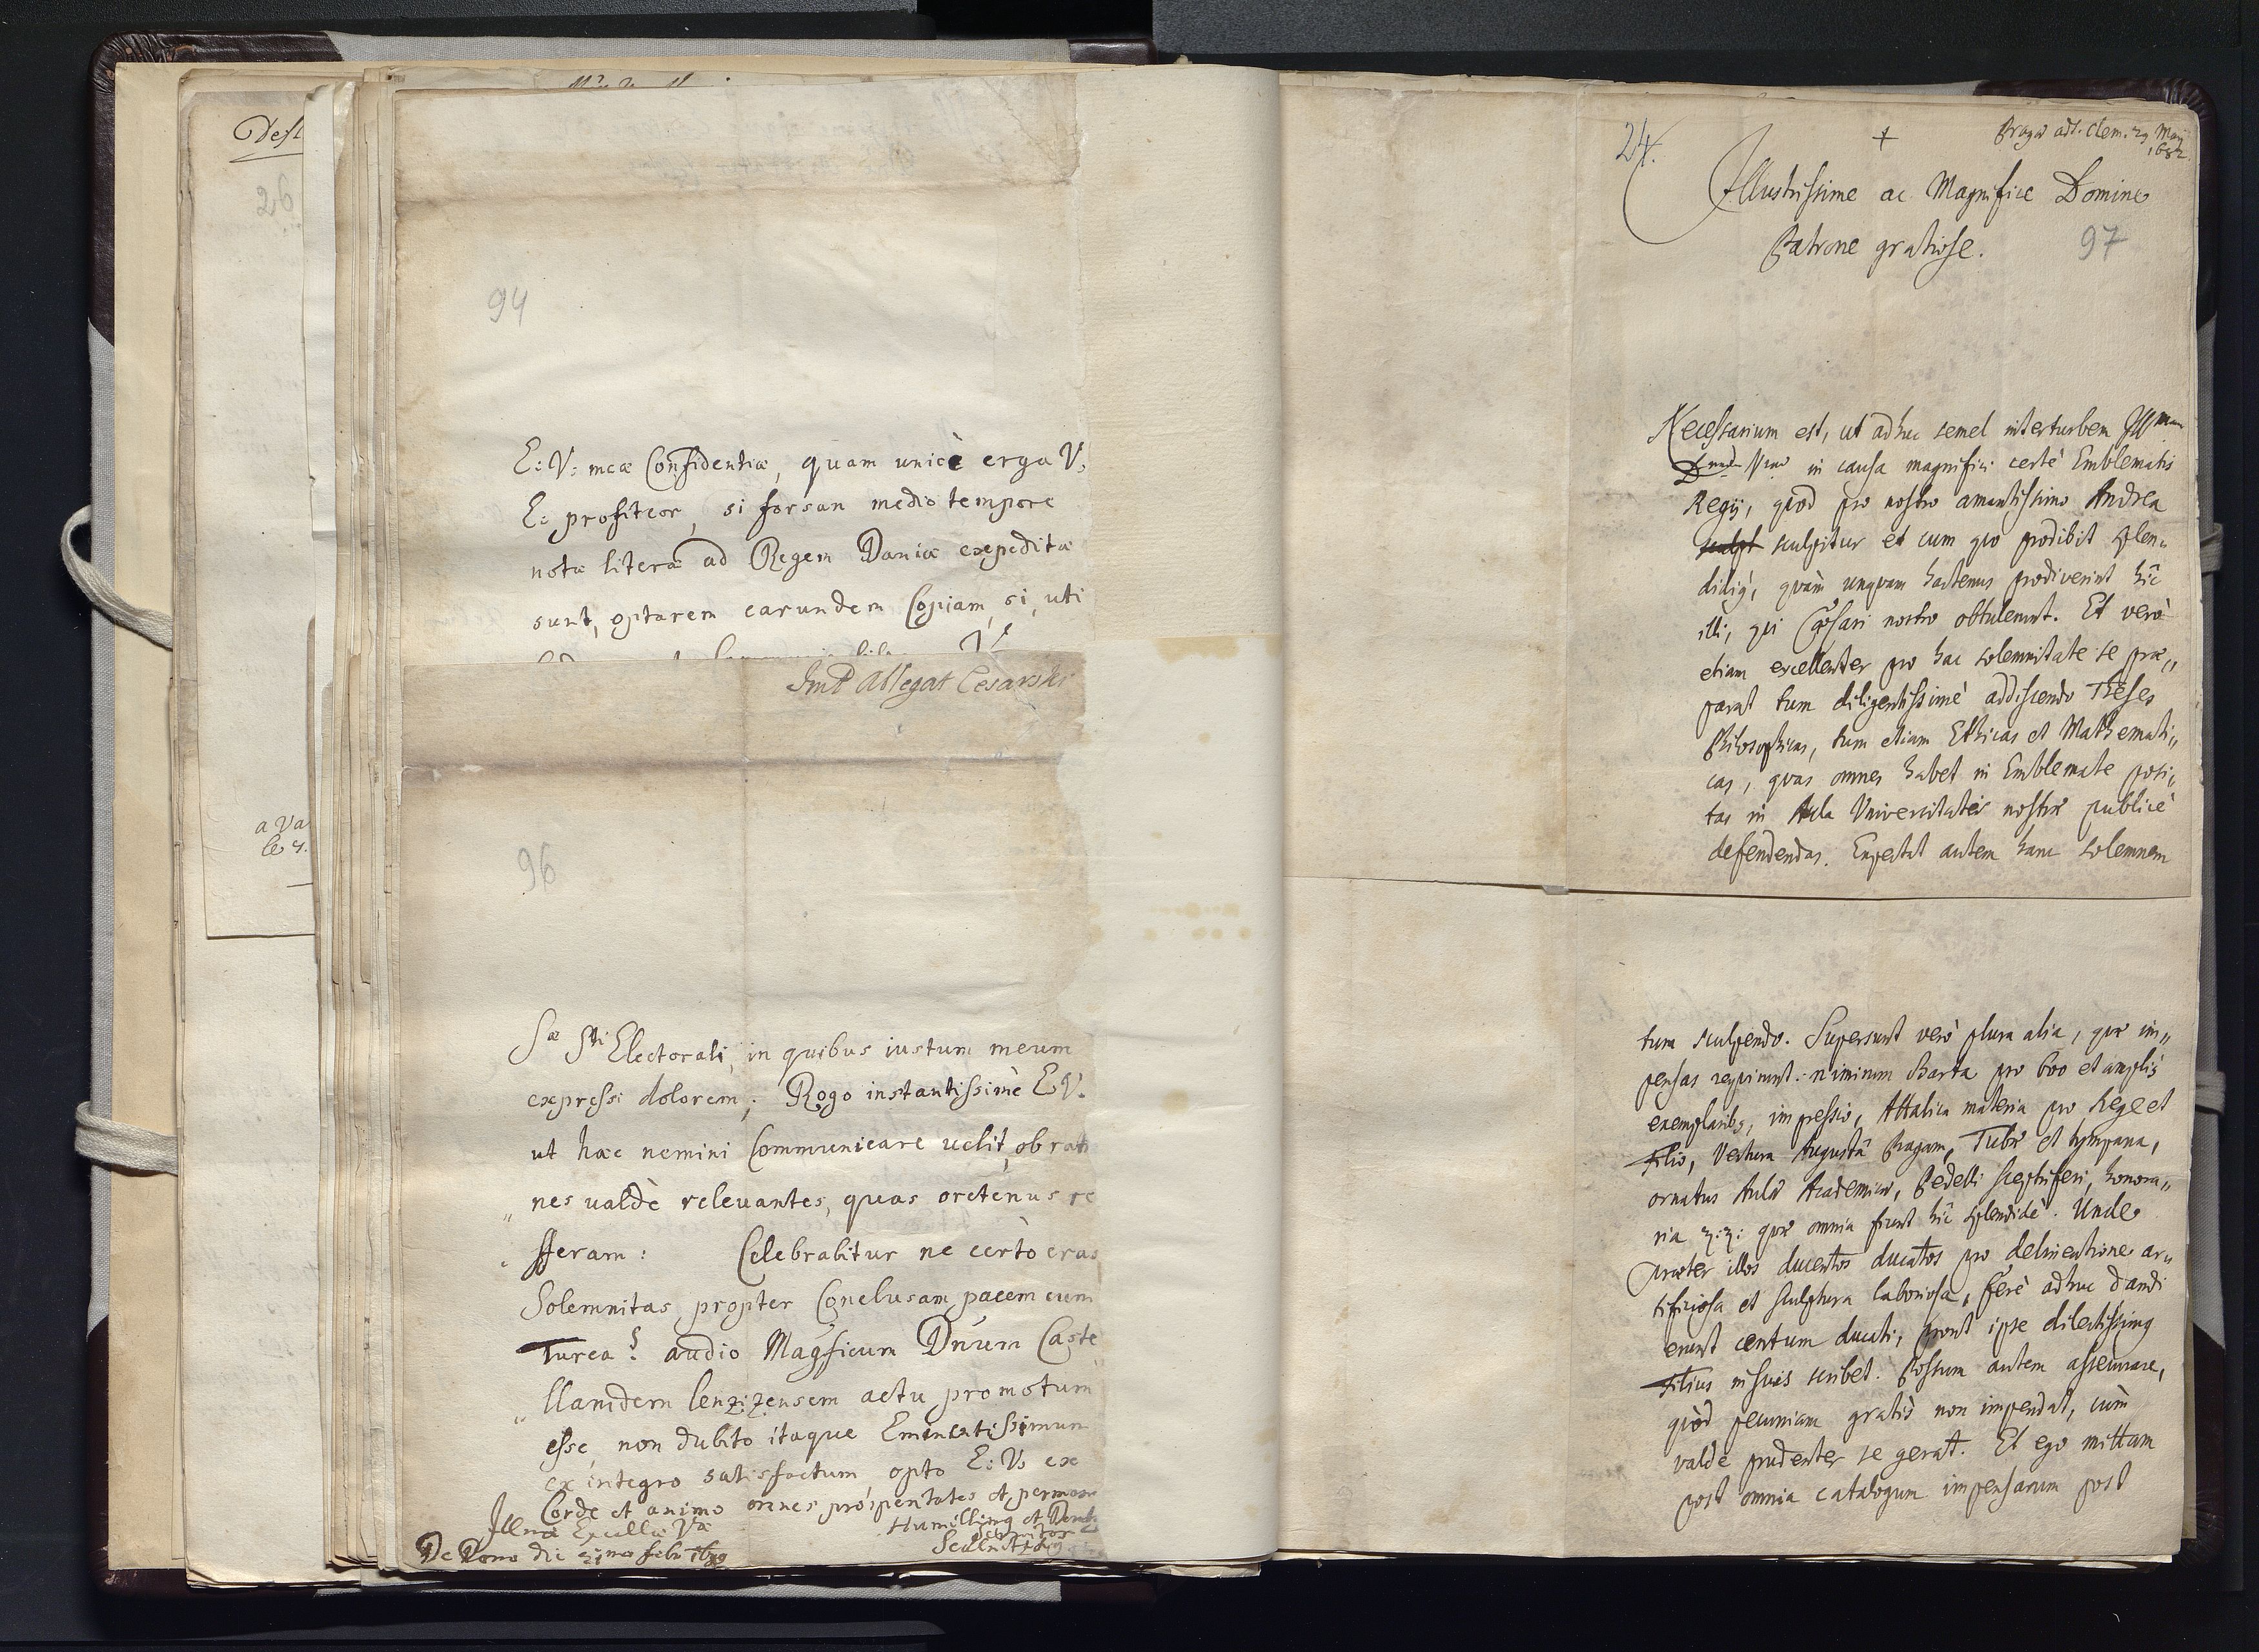 Desl
26
a Va
le s.
94
E: V: meæ Confidentiæ, quam unicè erga V:
E: profiteor, si forsan medio tempore
notæ literæ ad Regem Daniæ expeditæ
sunt, optarem earundem Copiam, si, uti
Imp Ablegat Cesarski
96
Sæ Sti Electorali, in quibus iustum meum
expressi dolorem; Rogo instantissimè E. V.
ut hæc nemini Communicare uelit, ob ratio
nes valdè releuantes, quas oretenus re
fferam: Celebrabitur ne certò cras
Solemnitas propter Conclusam pacem cum
Turca? audio Magficum Dnum Caste
llanidem lenzizensem actu promotum
esse, non dubito itaque Eminentissimum
ex integro satisfactum opto E: V: ex
Corde et animo omnes prosperitates et permane
Illmæ Excellæ Væ
Humillimg et
Seruitor
De Domo die
24.
+
Pragæ ad S. Clem. 29 Maij
1682.
Illustrissime ac Magnifice Domine
Patrone gratiose.
97
Necessarium est, ut adhuc semel interturbem Illmam
Dnem Vram in causa magnifici certè Emblematis
Regij, quod pro nostro amantissimo Andrea
sculpt sculpitur et cum quo prodibit splen„
didig, quàm unquam hactenus prodiverint hîc
illi, qui Cæsari nostro obtulerunt. Et verò
etiam excellenter pro hac solemnitate se præ„
parat tum diligentissimè addiscendo Theses
Philosophicas, tum etiam Ethicas et Mathemati„
cas, quas omnes habet in Emblemate posi„
tas in Aula Universitatis nostræ publicè
defendendas. Expectat autem hanc solemnem
tum sculpendo. Supersunt verò plura alia, quæ im„
pensas requirunt: nimirum Charta pro 600 et amplig
exemplaribg, impressio, Attalica materia pro Rege et
Filio, Vectura Augustâ Pragam, Tubæ et tympana,
ornatus Aulæ Academicæ, Pedelli sceptriferi, honora„
ria &c: &c: quæ omnia fiunt hîc splendidè. Unde
præter illos ducentos ducatos pro delineatione ar„
tificiosa et sculptura laboriosa, ferè adhuc dandi
erunt centum ducati, prout ipse dilectissimg
Filius in suis scribet. Possum autem assecurare,
quòd pecuniam gratis non impendat, cùm
valdè prudenter se gerat. Et ego mittam
post omnia catalogum impensarum post